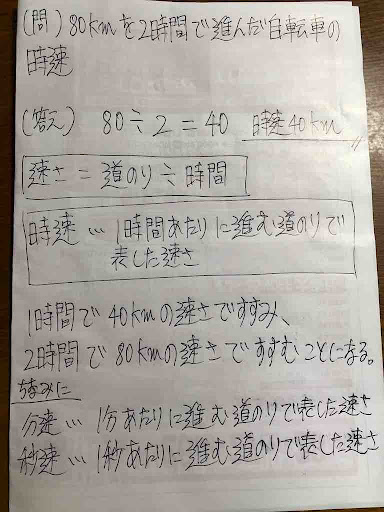 (問) 80kmを2時間で進んだ自転車の
時速
(答え) 80÷2=40 時速40km
速さ=道のり÷時間
時速…1時間あたりに進む道のりで
表した速さ
1時間で40kmの速さですすみ、
2時間で80kmの速さですすむことになる。
ちなみに
分速…1分あたりに進む道のりで表した速さ
秒速…1秒あたりに進む道のりで表した速さ